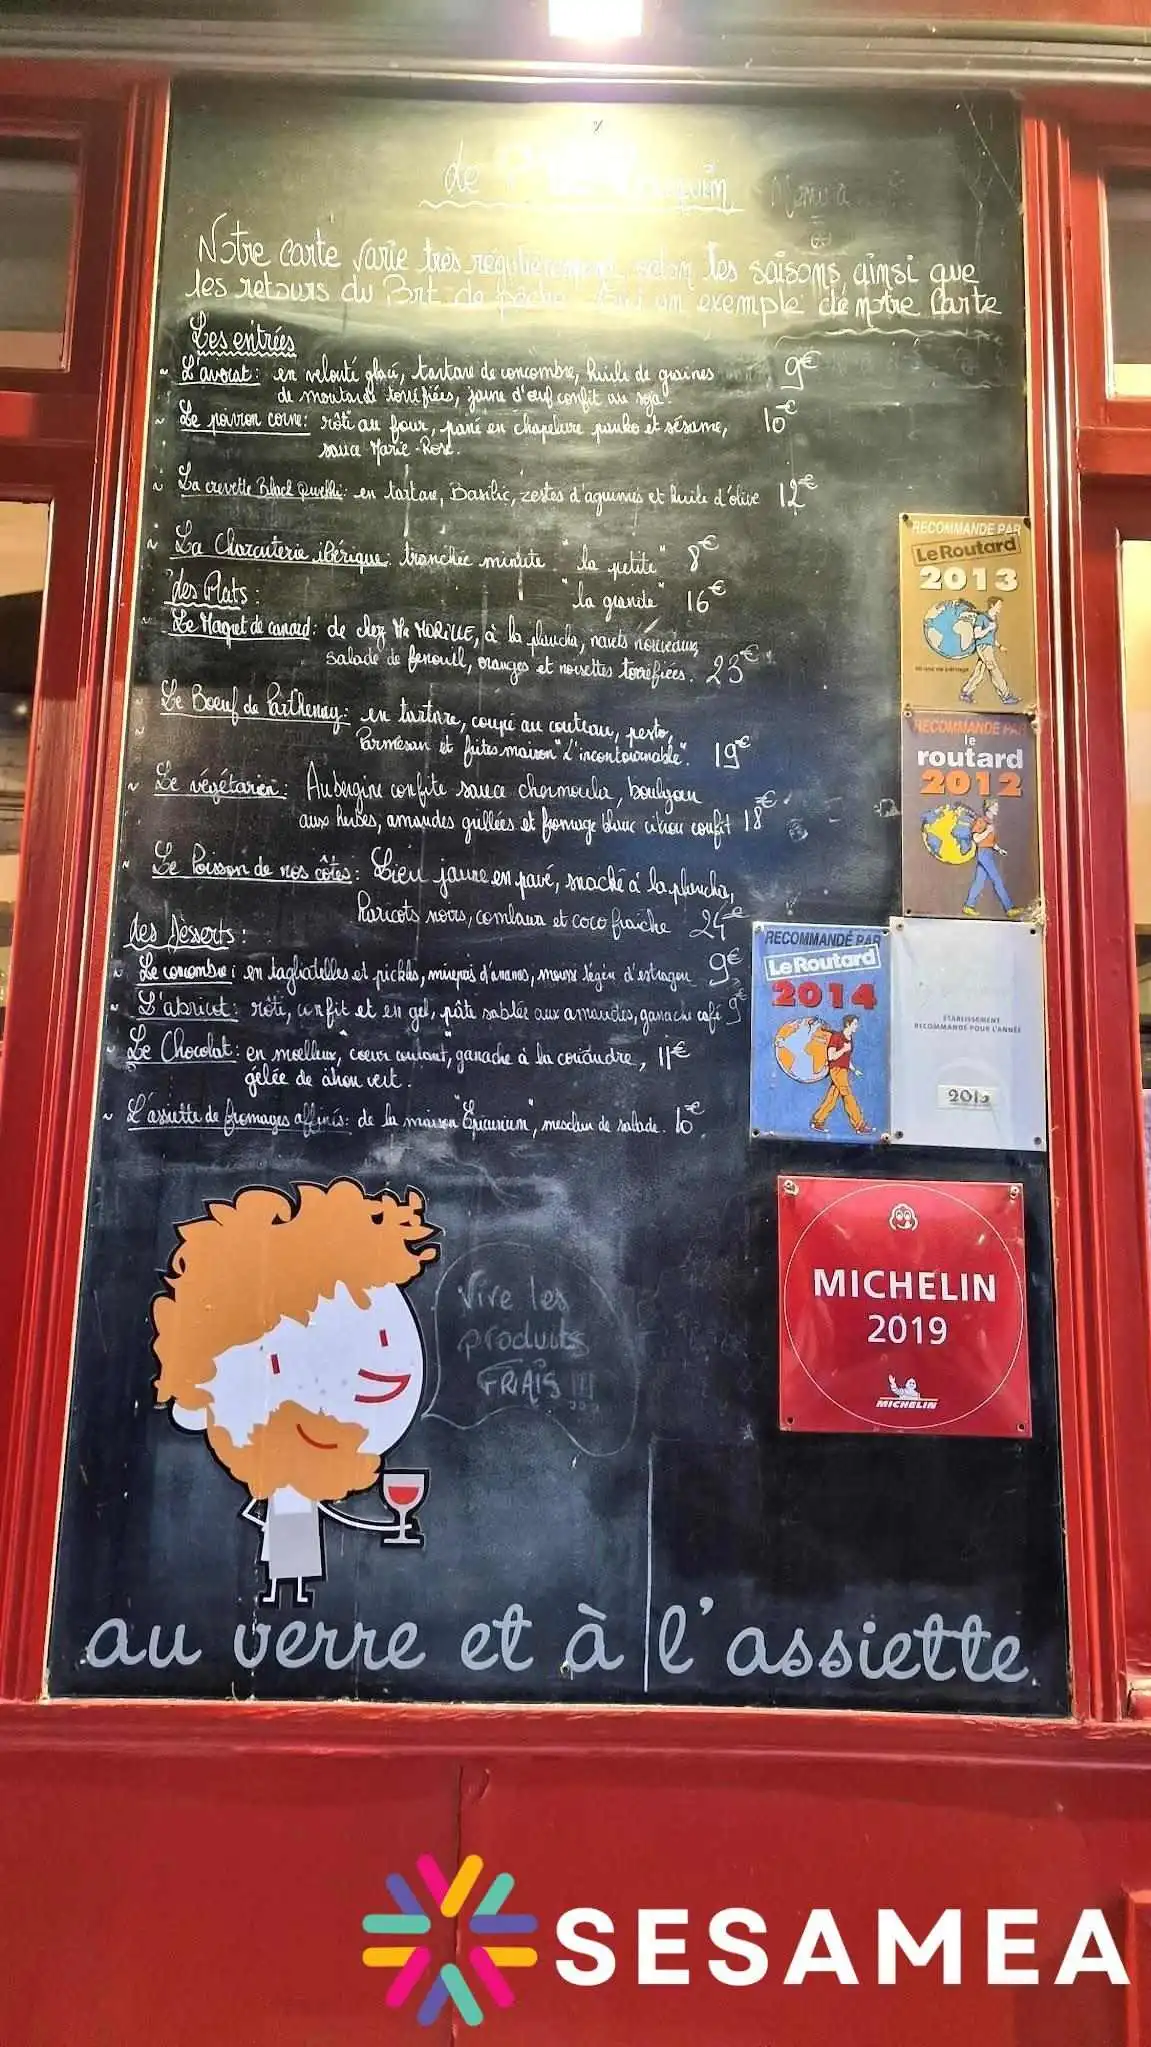 de
Notre carte varie très régulièrement selon les saisons, ainsi que
les retours du de pêche. un exemple de notre Carte
Les entrées
~ L'avocat: en velouté glacé, tartare de concombre, huile de graines 9€
de moutarde torréfiées, jaune d'œuf confit au soja.
~ Le poivron corne: rôti au four, pané en chapelure panko et sésame, 10€
sauce Marie-Rose.
~ La crevette Black: en tartare, Basilic, zestes d'agrumes et huile d'olive 12€
~ La Charcuterie ibérique: tranchée minute "la petite" 8€
"la grande" 16€
des Plats:
~ Le Magret de canard: de chez Mr MORILLE, à la plancha, navets nouveaux,
salade de fenouil, oranges et noisettes torréfiées. 23€
~ Le Boeuf de Parthenay: en tartare, coupé au couteau, pesto,
Parmesan et frites maison "L'incontournable". 19€
~ Le végétarien: Aubergine confite sauce chermoula, boulgour
aux herbes, amandes grillées et fromage blanc citron confit 18€
~ Le Poisson de nos côtes: Lieu jaune en pavé, snacké à la plancha,
haricots noirs, combava et coco fraîche 24€
des Desserts:
~ Le concombre: en tagliatelles et pickles, d'ananas, mousse légère d'estragon 9€
~ L'abricot: rôti, confit et en gel, pâte sablée aux amandes, ganache café 9€
~ Le Chocolat: en moelleux, "coeur coulant", ganache à la coriandre, 11€
gelée de citron vert.
~ L'assiette de fromages affinés: de la maison "Epicurium", mesclun de salade. 10€
RECOMMANDÉ PAR
Le Routard
2013
RECOMMANDÉ PAR
le
routard
2012
RECOMMANDÉ PAR
Le Routard
2014
ÉTABLISSEMENT
RECOMMANDÉ POUR L'ANNÉE
MICHELIN
2019
MICHELIN
Vive les
produits
FRAIS !!!
au verre et à l'assiette
SESAMEA